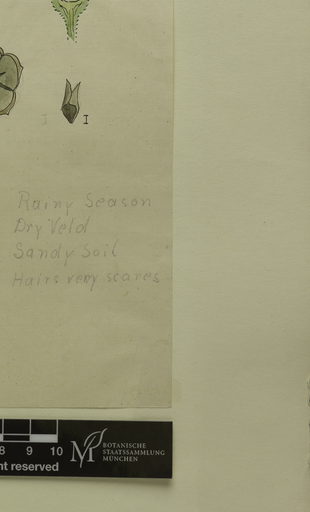 I I
Rainy Season
Dry Veld
Sandy Soil
Hairs very scares
8 9 10
nt reserved
BOTANISCHE
STAATSSAMMLUNG
MÜNCHEN